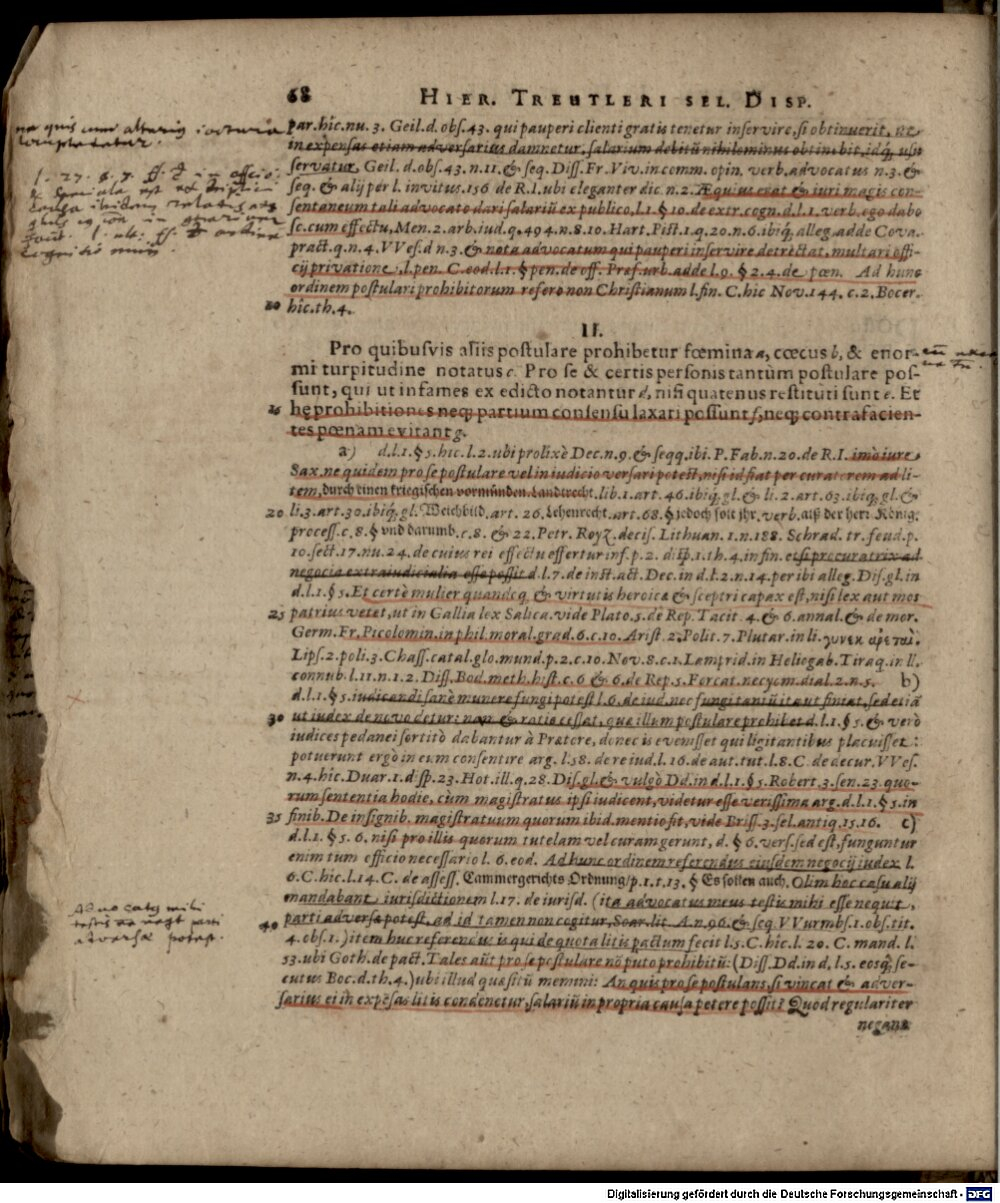 68 HIER. TREUTLERI SEL. DISP.
par. hîc. nu. 3. Geil. d. obs. 43. qui pauperi clienti gratis tenetur inservire, si obtinuerit, ut
in expensas etiam adversarius damnetur, salarium debitũ nihilominus obtinebit, idq́; usu
servatur, Geil. d. obs. 43. n. 11. & seq. Diss. Fr. Viv. in comm. opin. verb. advocatus n. 3. &
seq. & alij per l. invitus. 156 de R. I. ubi eleganter dic. n. 2. Æquius erat & iuri magis con-
sentaneum tali advocato dari salariũ ex publico, l. 1. § 10. de extr. cogn. d. l. 1. verb. ego dabo
sc. cum effectu, Men. 2. arb. iud. q. 494. n. 8. 10. Hart. Pist. 1. q. 20. n. 6. ibiq́; alleg. adde Cova.
pract. q. n. 4. VVes. d n. 3. & nota advocatum qui pauperi inservire detrectat, multari offi-
cij privatione, l. pen. C. eod. l. 1. § pen. de off. Præf. urb. adde l. 9. § 2. 4. de pœn. Ad hunc
ordinem postulari prohibitorum refero non Christianum l. fin. C. hic Nov. 144. c. 2. Bocer.
hîc. th. 4.
II.
Pro quibusvis aliis postulare prohibetur fœmina a, cœcus b, & enor-
mi turpitudine notatus c. Pro se & certis personis tantùm postulare pos-
sunt, qui ut infames ex edicto notantur d, nisi quatenus restituti sunt e. Et
15 hę prohibitiones neq; partium consensu laxari possunt f, neq; contrafacien-
tes pœnam evitant g.
a) d. l. 1. § 5. hîc. l. 2. ubi prolixè Dec. n. 9. & seqq. ibi. P. Fab. n. 20. de R. I. imò iure
Sax. ne quidem pro se postulare vel in iudicio versari potest, nisi id fiat per curatorem ad li-
tem, durch einen kriegischen vormünden. Landrecht. lib. 1. art. 46. ibiq́; gl. & li. 2. art. 63. ibiq́; gl. &
20 li. 3. art. 30. ibiq́; gl. Weichbild. art. 26. Lehenrecht. art. 68. § jedoch solt jhr. verb. alß der herr König.
process. c. 8. § vnd darumb. c. 8. & 22. Petr. Royz. decis. Lithuan. 1. n. 188. Schrad. tr. feud. p.
10. sect. 17. nu. 24. de cuius rei effectu effertur inf. p. 2. disp. 1. th. 4. in fin. etsi procuratrix ad
negocia extraiudicialia esse possit d. l. 7. de inst. act. Dec. in d. l. 2. n. 14. per ibi alleg. Dis. gl. in
d. l. 1. § 5. Et certè mulier quandoq; & virtutis heroicæ & sceptri capax est, nisi lex aut mos
25 patrius vetet, ut in Gallia lex Salica. vide Plato. 5. de Rep. Tacit. 4. & 6. annal. & de mor.
Germ. Fr. Picolomin. in phil. moral. grad. 6. c. 10. Arist. 2. Polit. 7. Plutar. in li. γυνεκ ἀρεταί.
Lips. 2. poli. 3. Chass. catal. glo. mund. p. 2. c. 10. Nov. 8. c. 1. Lamprid. in Heliogab. Tiraq. in ll.
connub. l. 11. n. 1. 2. Diss. Bod. meth. hist. c. 6 & 6. de Rep. 5. Forcat. necyom. dial. 2. n. 5. b)
d. l. 1. § 5. iudicandi sanè munere fungi potest l. 6. de iud. nec fungi tantũ ita ut finiat, sed etiã
30 ut iudex de novo detur: non & ratio cessat, quæ illum postulare prohibet d. l. 1. § 5. & verò
iudices pedanei sortitò dabantur à Prætore, donec is evenisset qui litigantibus placuisset:
potuerunt ergò in eum consentire arg. l. 58. de re iud. l. 16. de aut. tut. l. 8. C. de decur. VVes.
n. 4. hic. Duar. 1. disp. 23. Hot. ill. q. 28. Dis. gl. & vulgò Dd. in d. l. 1. § 5. Robert. 3. sen. 23. quo-
rum sententia hodie, cùm magistratus ipsi iudicent, videtur esse verissima arg. d. l. 1. § 5. in
35 finib. De insignib. magistratuum quorum ibid. mentio fit, vide Briss. 3. sel. antiq. 15. 16. c)
d. l. 1. § 5. 6. nisi pro illis quorum tutelam vel curam gerunt, d. § 6. vers. sed est, funguntur
enim tum officio necessario l. 6. eod. Ad hunc ordinem referendus eiusdem negocij iudex l.
6. C. hîc. l. 14. C. de assess. Cammergerichts Ordnung / p. 1. t. 13. § Es sollen auch. Olim hoc casu alij
mandabant iurisdictionem l. 17. de iurisd. (ita advocatus meus testis mihi esse nequit,
40 parti adversæ potest, ad id tamen non cogitur, Soar. lit. A. n. 96. & seq. VVurmbs. 1. obs. tit.
4. obs. 1.) item huc referendus is qui de quota litis pactum fecit l. 5. C. hîc. l. 20. C. mand. l.
53. ubi Goth. de pact. Tales aũt pro se postulare nõ puto prohibitũ: (Diss. Dd. in d. l. 5. eosq́; se-
cutus Boc. d. th. 4.) ubi illud quæsitũ memini: An quis pro se postulans, si vincat & adver-
sarius ei in expẽsas litis condẽnetur, salariũ in propria causa petere possit? Quod regulariter
negant
Digitalisierung gefördert durch die Deutsche Forschungsgemeinschaft - DFG